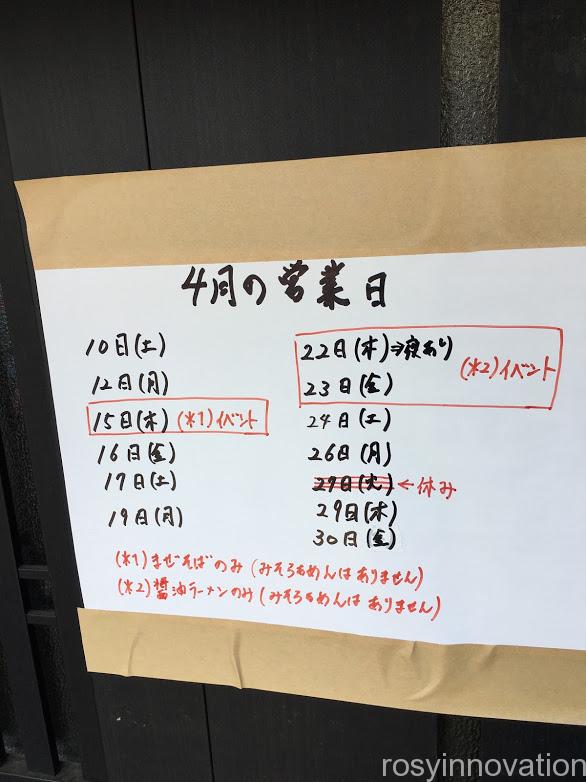 4月の営業日
10日(土)
12日(月)
15日(木) (*1)イベント
16日(金)
17日(土)
19日(月)
22日(木)⇒夜あり
23日(金)
(*2)イベント
24日(土)
26日(月)
27日(火) ←休み
29日(木)
30日(金)
(*1)まぜそばのみ(みそらぁめんはありません)
(*2)醤油ラーメンのみ(みそらぁめんはありません)
rosyinnovation